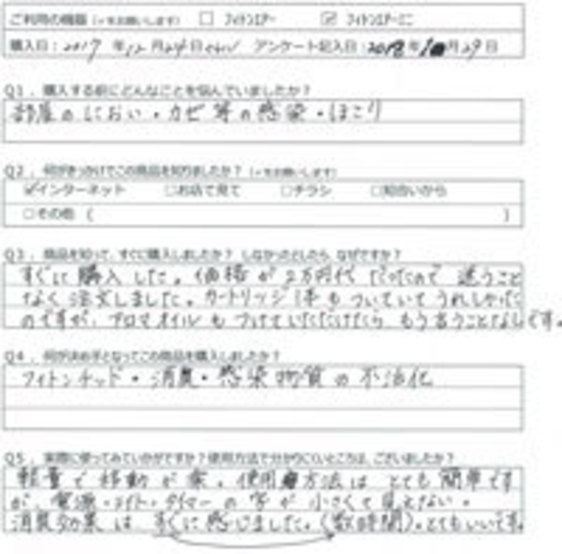 ご利用の機器 (✓をお願いします) □ フィトンエアー ☑ フィトンエアーミニ
購入日：2017 年 12 月 24 日 アンケート記入日：2018 年 10 月 29 日
Q1．購入する前にどんなことを悩んでいましたか？
部屋のにおい・カゼ等の感染・ほこり
Q2．何がきっかけでこの商品を知りましたか？ (✓をお願いします)
☑インターネット □お店で見て □チラシ □知合いから
□その他 ( )
Q3．商品を知って、すぐに購入しましたか？ しなかったとしたら、なぜですか？
すぐに購入した。価格が2万円代だったので迷うこと
なく注文しました。カートリッジ1本もついていてうれしかった
のですが、アロマオイルもつけていただけたら もう言うことなしです。
Q4．何が決め手となってこの商品を購入しましたか？
フィトンチッド・消臭・感染物質の不活化
Q5．実際に使ってみていかがですか？使用方法で分かりにくいところは、ございましたか？
軽量で移動が楽。使用方法はとても簡単です
が、電源・ライト・タイマーの字が小さくて見えない。
消臭効果はすぐに感じました。(数時間)。とてもいいです。